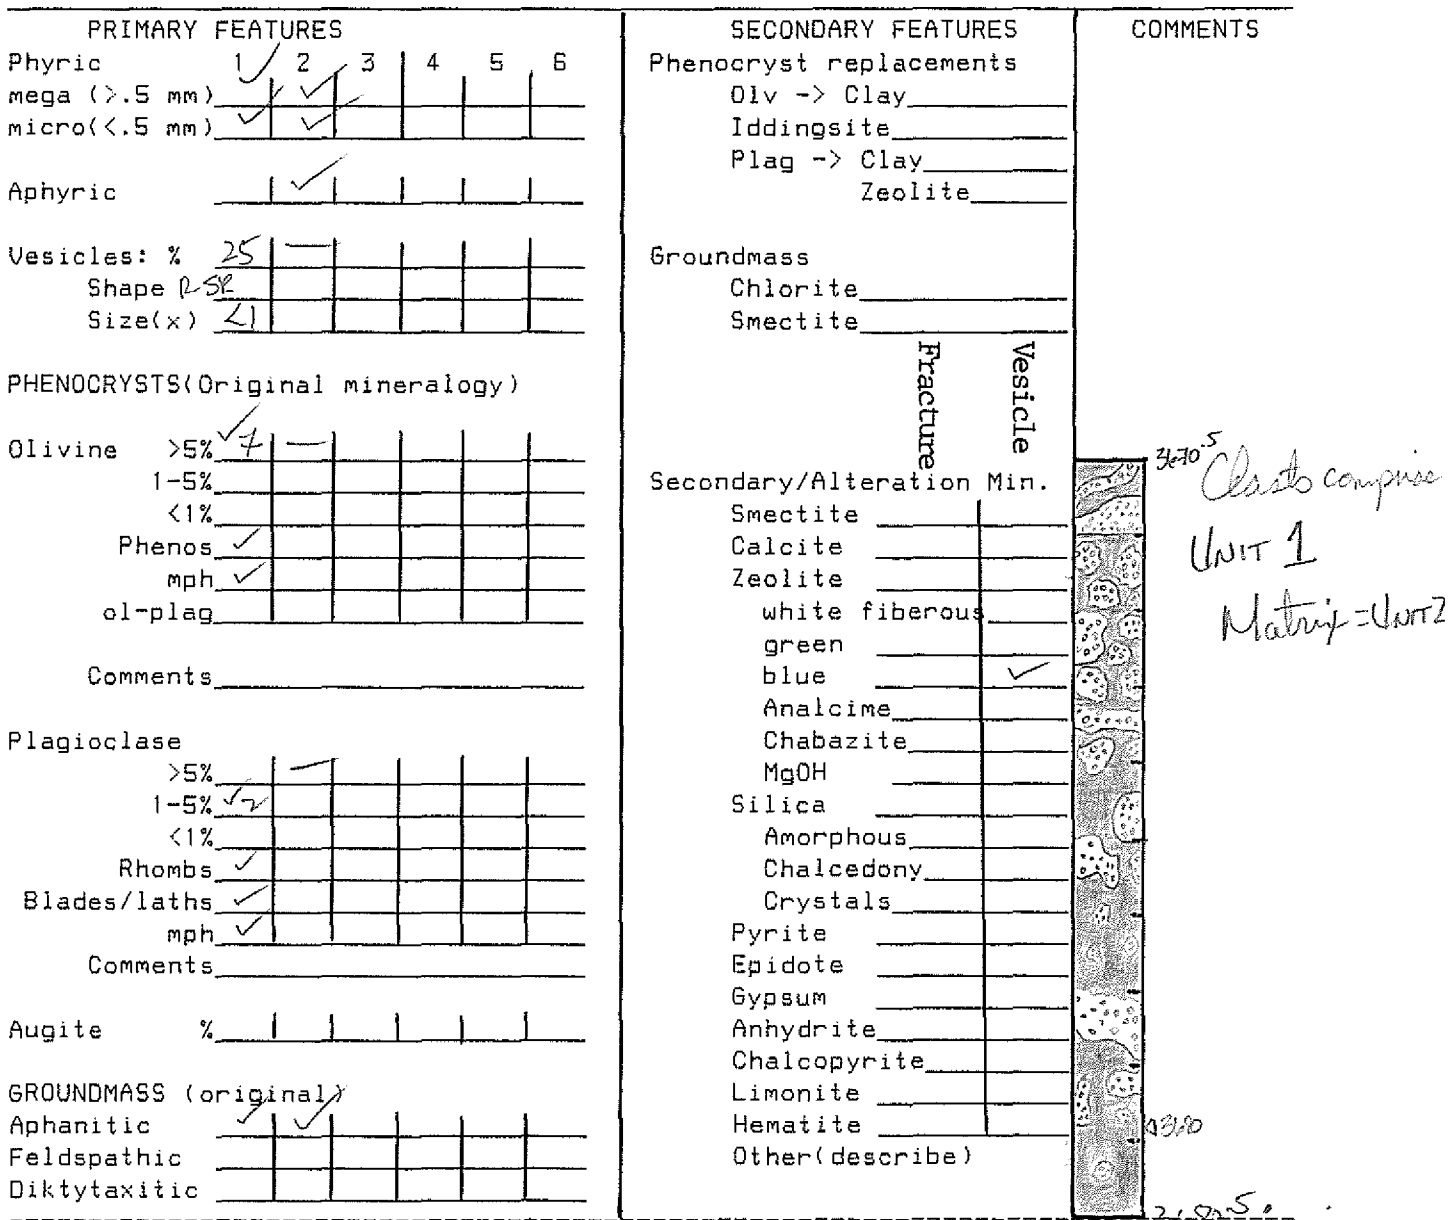 PRIMARY FEATURES
Phyric 1 ✓ 2 3 4 5 6
mega (>.5 mm) ✓
micro(<.5 mm) ✓ ✓
Aphyric ✓
Vesicles: % 25 —
Shape R-SR
Size(x) <1
PHENOCRYSTS(Original mineralogy)
Olivine >5% ✓ 7 —
1-5%
<1%
Phenos ✓
mph ✓
ol-plag
Comments
Plagioclase
>5% —
1-5% ✓ 2
<1%
Rhombs ✓
Blades/laths ✓
mph ✓
Comments
Augite %
GROUNDMASS (original)
Aphanitic ✓ ✓
Feldspathic
Diktytaxitic
SECONDARY FEATURES
Phenocryst replacements
Olv -> Clay
Iddingsite
Plag -> Clay
Zeolite
Groundmass
Chlorite
Smectite
Fracture
Vesicle
Secondary/Alteration Min.
Smectite
Calcite
Zeolite
white fiberous
green
blue ✓
Analcime
Chabazite
MgOH
Silica
Amorphous
Chalcedony
Crystals
Pyrite
Epidote
Gypsum
Anhydrite
Chalcopyrite
Limonite
Hematite
Other(describe)
COMMENTS
3670.5
Clasts comprise
UNIT 1
Matrix = UNIT 2
3680